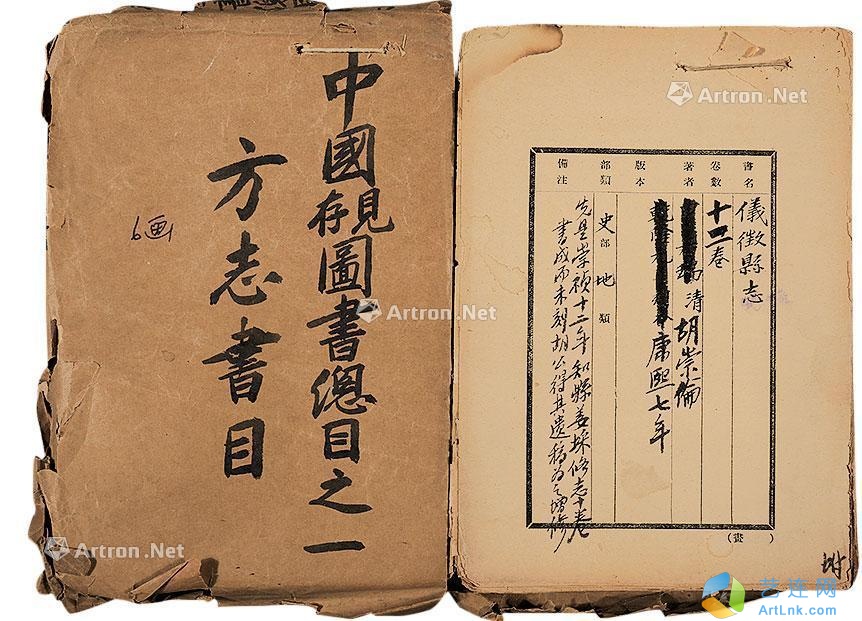 中國見存圖書總目之一
方志書目
6画
Artron.Net
Artron.Net
Artron.Net
書名 儀徵縣志
卷數 十二卷
著者 清 胡崇倫
版本 康熙七年
部類 史部 地類
備注 先是崇禎十二年知縣姜埰修志十卷
書成而未刻胡公得其遺稿為之增修
(畫)
附
艺连网
ArtLnk.com